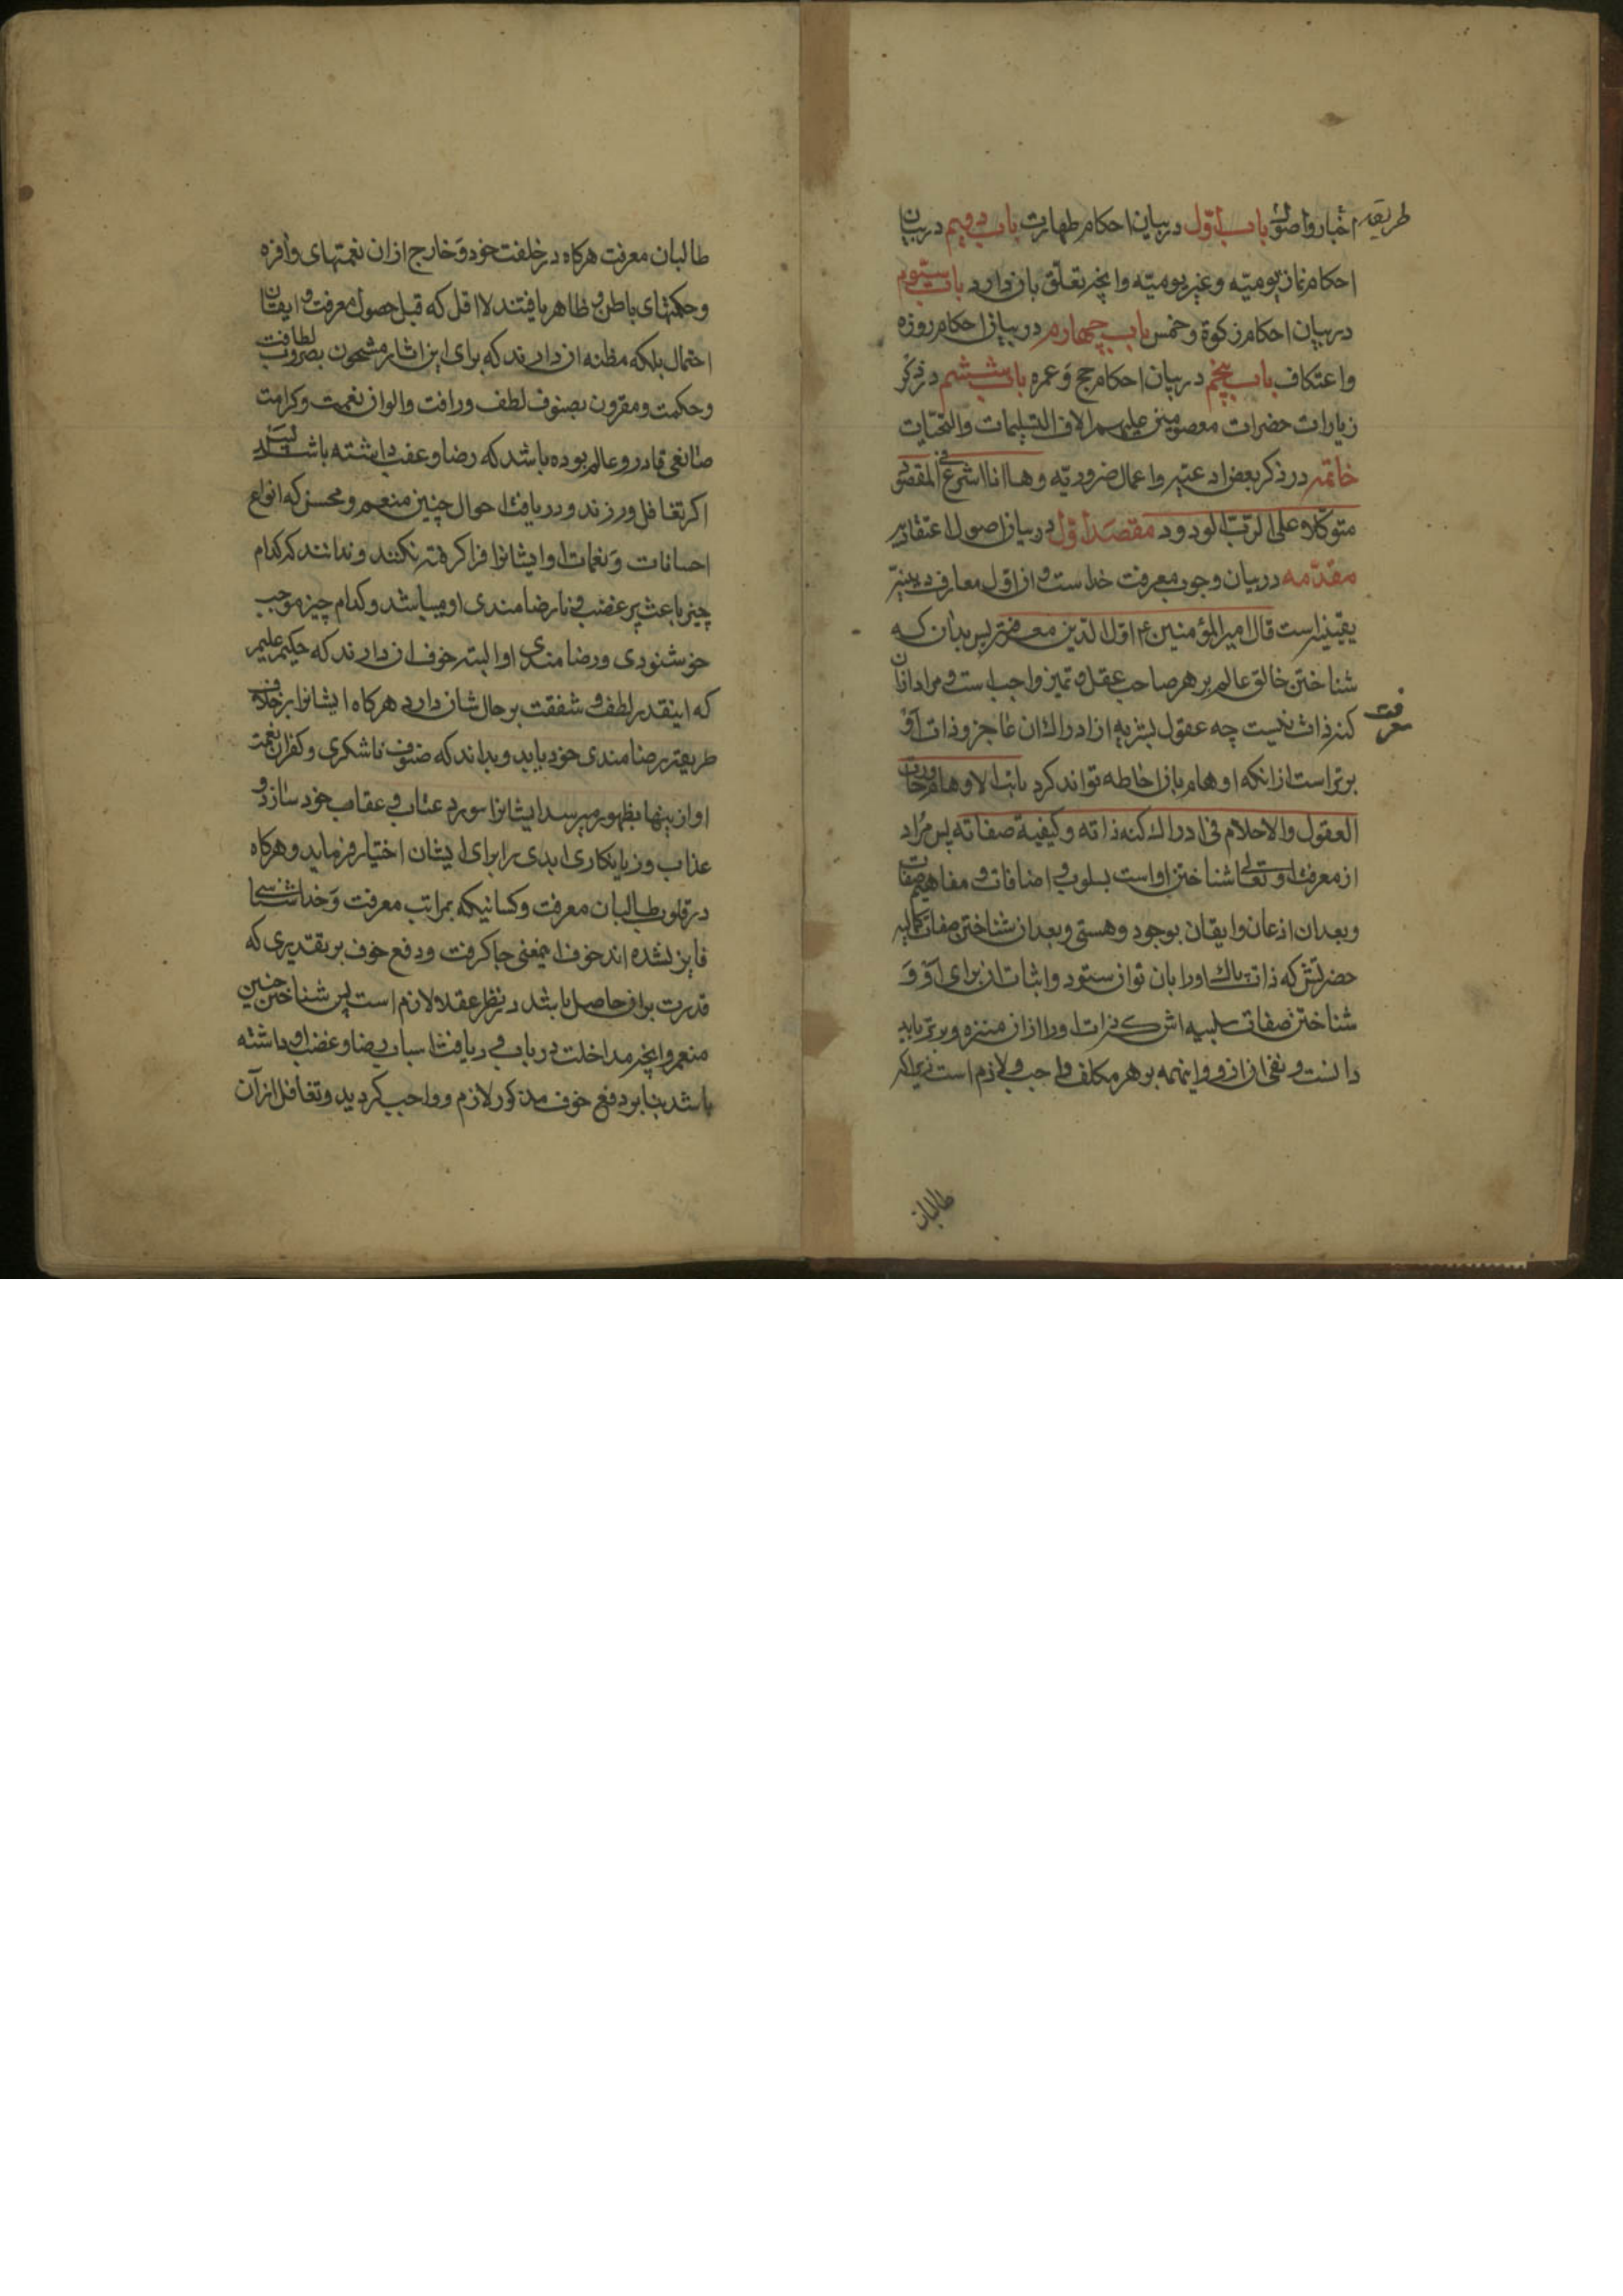 طریقه اخبار و اصول باب اول در بیان احکام طهارت باب دویم در بیان
احکام نماز یومیّه و غیر یومیّه و آنچه تعلّق بان دارد باب سیّوم
در بیان احکام زکوة و خمس باب چهارم در بیان احکام روزه
و اعتکاف باب پنجم در بیان احکام حج و عمره باب ششم در ذکر
زیارات حضرات معصومین علیهم الاف التسلیمات والتحیّات
خاتمه در ذکر بعض ادعیه و اعمال ضروریّه وها انا اشرع فی المقصود
متوکلا علی الربّ الودود مقصد اوّل در بیان اصول اعتقادیه
مقدّمه در بیان وجوب معرفت خداست و از اول معارف دینیّه
یقینیه است قال امیرالمؤمنین ع اوّل الدّین معرفته پس بدان که
شناختن خالق عالم بر هر صاحب عقل و تمیز واجب است و مراد از ان
معرفت
کنه ذات نیست چه عقول بشریه از ادراک ان عاجز و ذات او
برتر است از انکه اوهام بان احاطه تواند کرد تاهت الاوهام و حارت
العقول والاحلام فی ادراک کنه ذاته وکیفیة صفاته پس مراد
از معرفت او تعالی شناختن او است بسلوب و اضافات و مفاهیم صفات
و بعد از اذعان و ایقان بوجود و هستی و بعد از شناختن صفات کمالیه
حضرتش که ذات پاک او را بان توان ستود و اثبات ان برای او و
شناختن صفات سلبیه اش که ذات او را از ان منزه و برتر باید
دانست و نفی ان از او و اینهمه بر هر مکلف واجب و لازم است زیرا که
طالبان
طالبان معرفت هرکاه در خلقت خود و خارج از ان نعمتهای وافره
و حکمتهای باطن و ظاهر یافتند لا اقل که قبل حصول معرفت و ایقان
احتمال بلکه مظنه ان دارند که برای این اثار مشحون بضروب لطافت
و حکمت و مقرون بصنوف لطف و رافت و الوان نعمت و کرامت
صانعی قادر و عالم بوده باشد که رضا و غضب داشته باشد پس
اکر تغافل ورزند و دریافت احوال چنین منعم و محسن که انواع
احسانات و نعمات او ایشانرا فرا کرفته نکنند و ندانند که کدام
چیز باعث بر غضب و نارضامندی او میباشد و کدام چیز موجب
خوشنودی و رضامندی او البته خوف ان دارند که حکیم علیم
که اینقدر لطف و شفقت بر حال شان دارد هرکاه ایشانرا بر خلاف
طریقه رضامندی خود یابد و بداند که صنوف ناشکری و کفران نعمت
او از ینها بظهور میرسد ایشانرا مورد عتاب و عقاب خود سازد و
عذاب و زیانکاری ابدی را برای ایشان اختیار فرماید و هرکاه
در قلوب طالبان معرفت و کسانیکه بمراتب معرفت و خداشناسی
فایز نشده اند خوف اینمعنی جا کرفت و دفع خوف بر تقدیری که
قدرت بران حاصل باشد در نظر عقلا لازم است پس شناختن چنین
منعم و آنچه مداخلت در باب دریافت اسباب رضا و غضب او داشته
باشد بنا بر دفع خوف مذکور لازم و واجب کردید و تغافل از آن